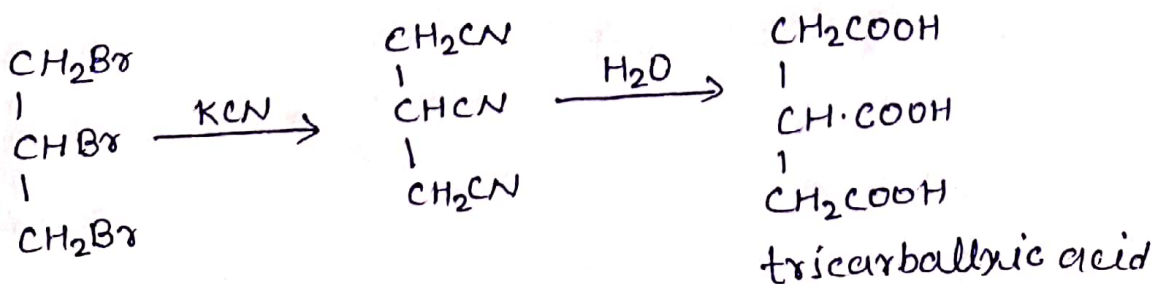 CH₂Br
CHBr
CH₂Br
KCN
CH₂CN
CHCN
CH₂CN
H₂O
CH₂COOH
CH·COOH
CH₂COOH
tricarballylic acid